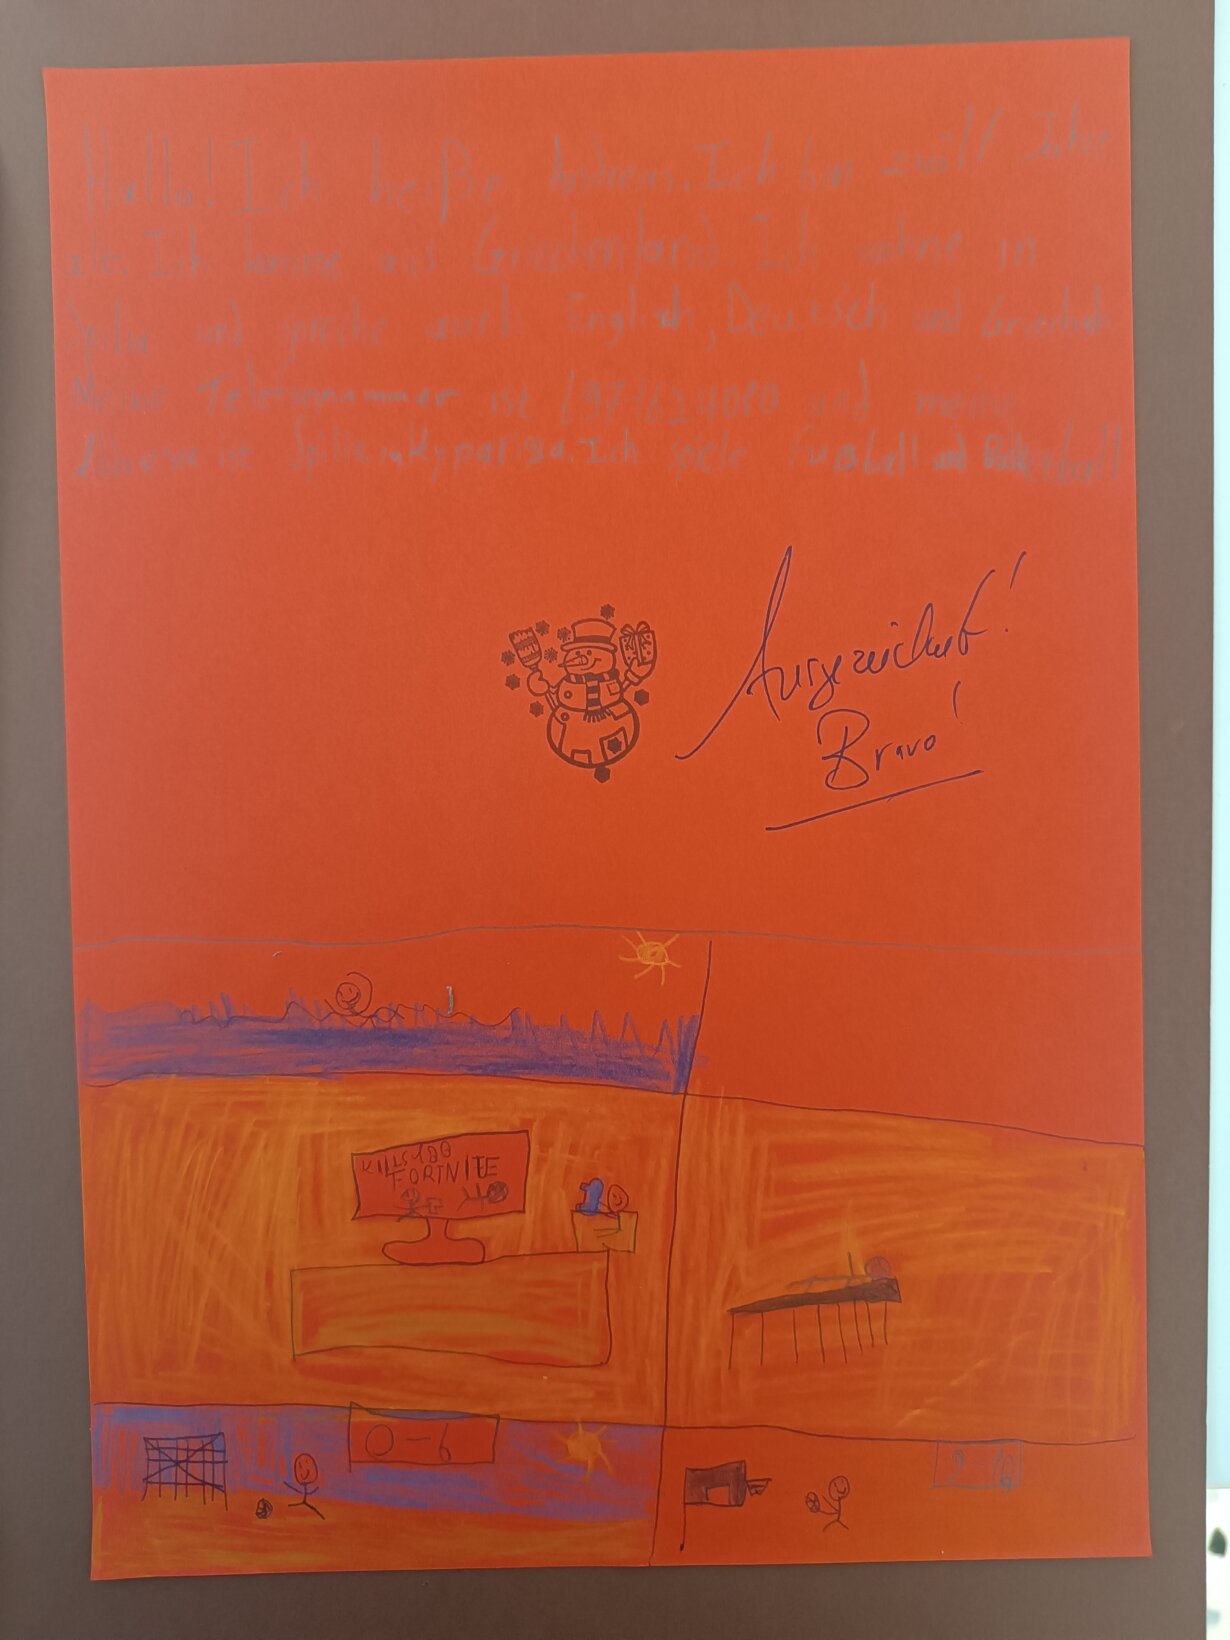 Hallo! Ich heiße Andreas. Ich bin zwölf Jahre
alt. Ich komme aus Griechenland. Ich wohne in
Spilia und spreche auch Englisch, Deutsch und Griechisch
Meine Telefonnummer ist und meine
ist Ich spiele Fußball und Basketball
Ausgezeichnet!
Bravo!
KILLS 100
FORTNITE
0-6